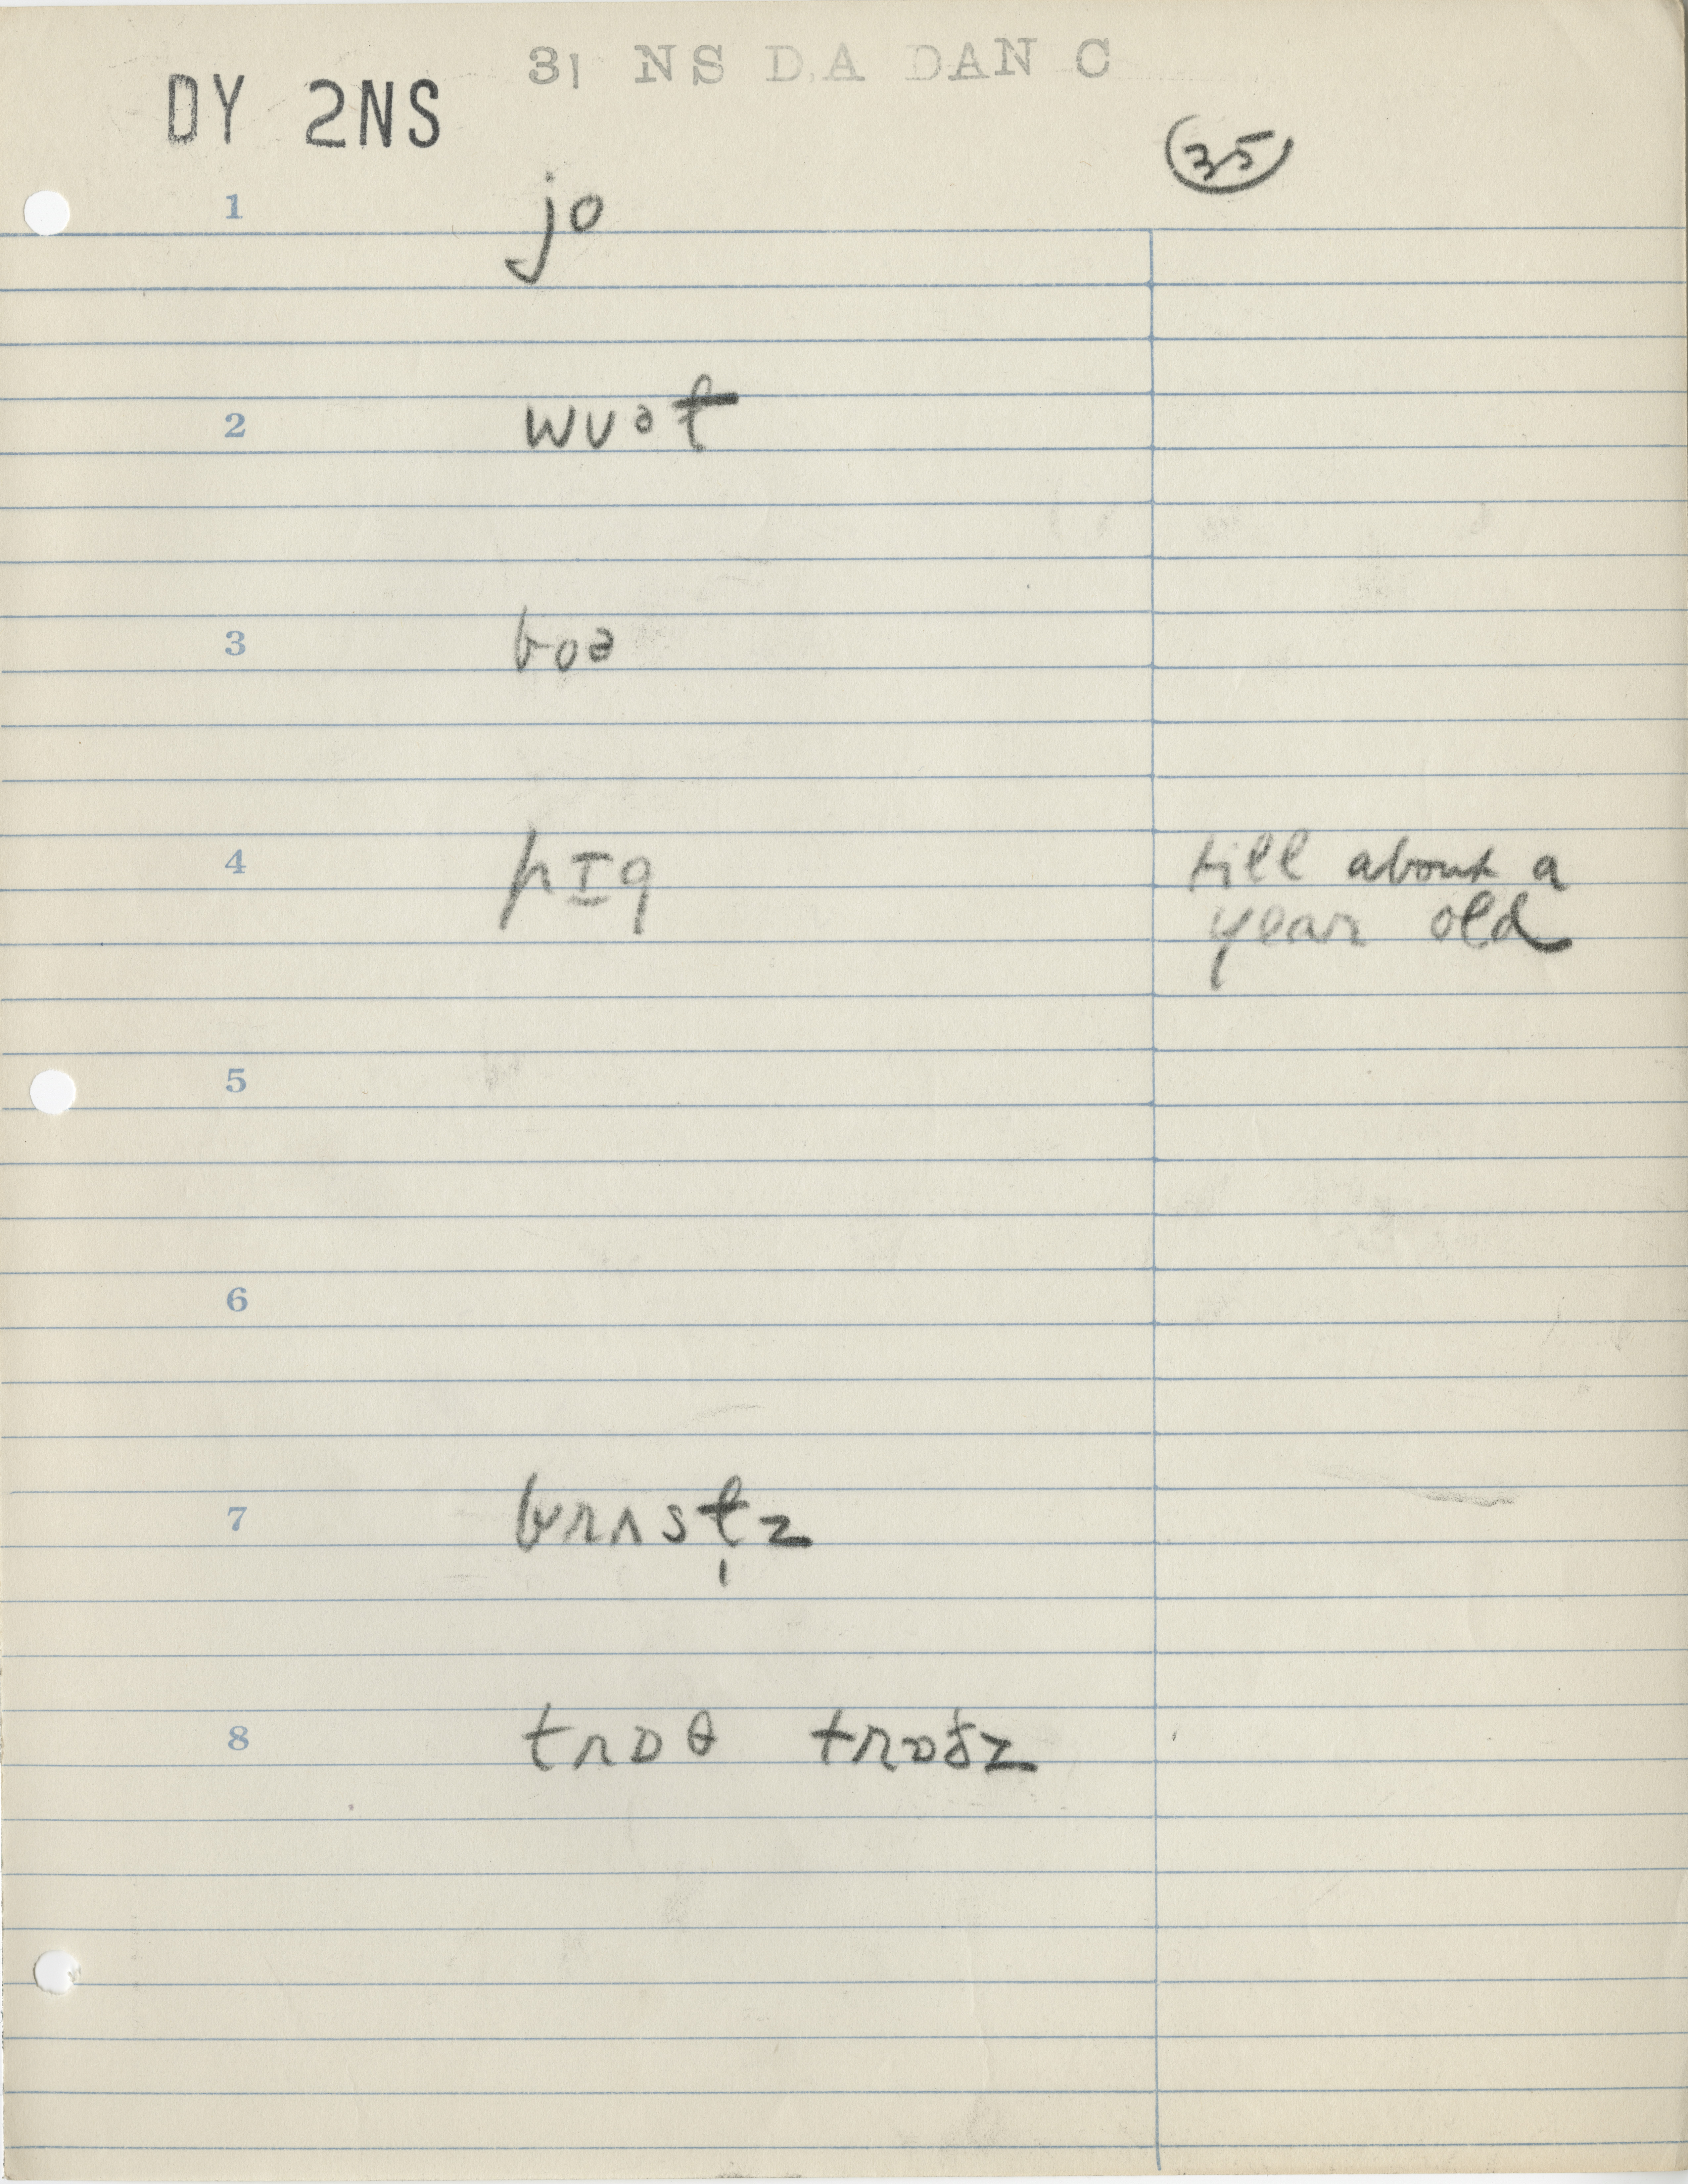 31 NS DA DAN C
DY 2NS
35
1 jo
2 wʊət
3 boə
4 pɪg till about a
year old
5
6
7 brʌstz
8 trɒθ trɒðz